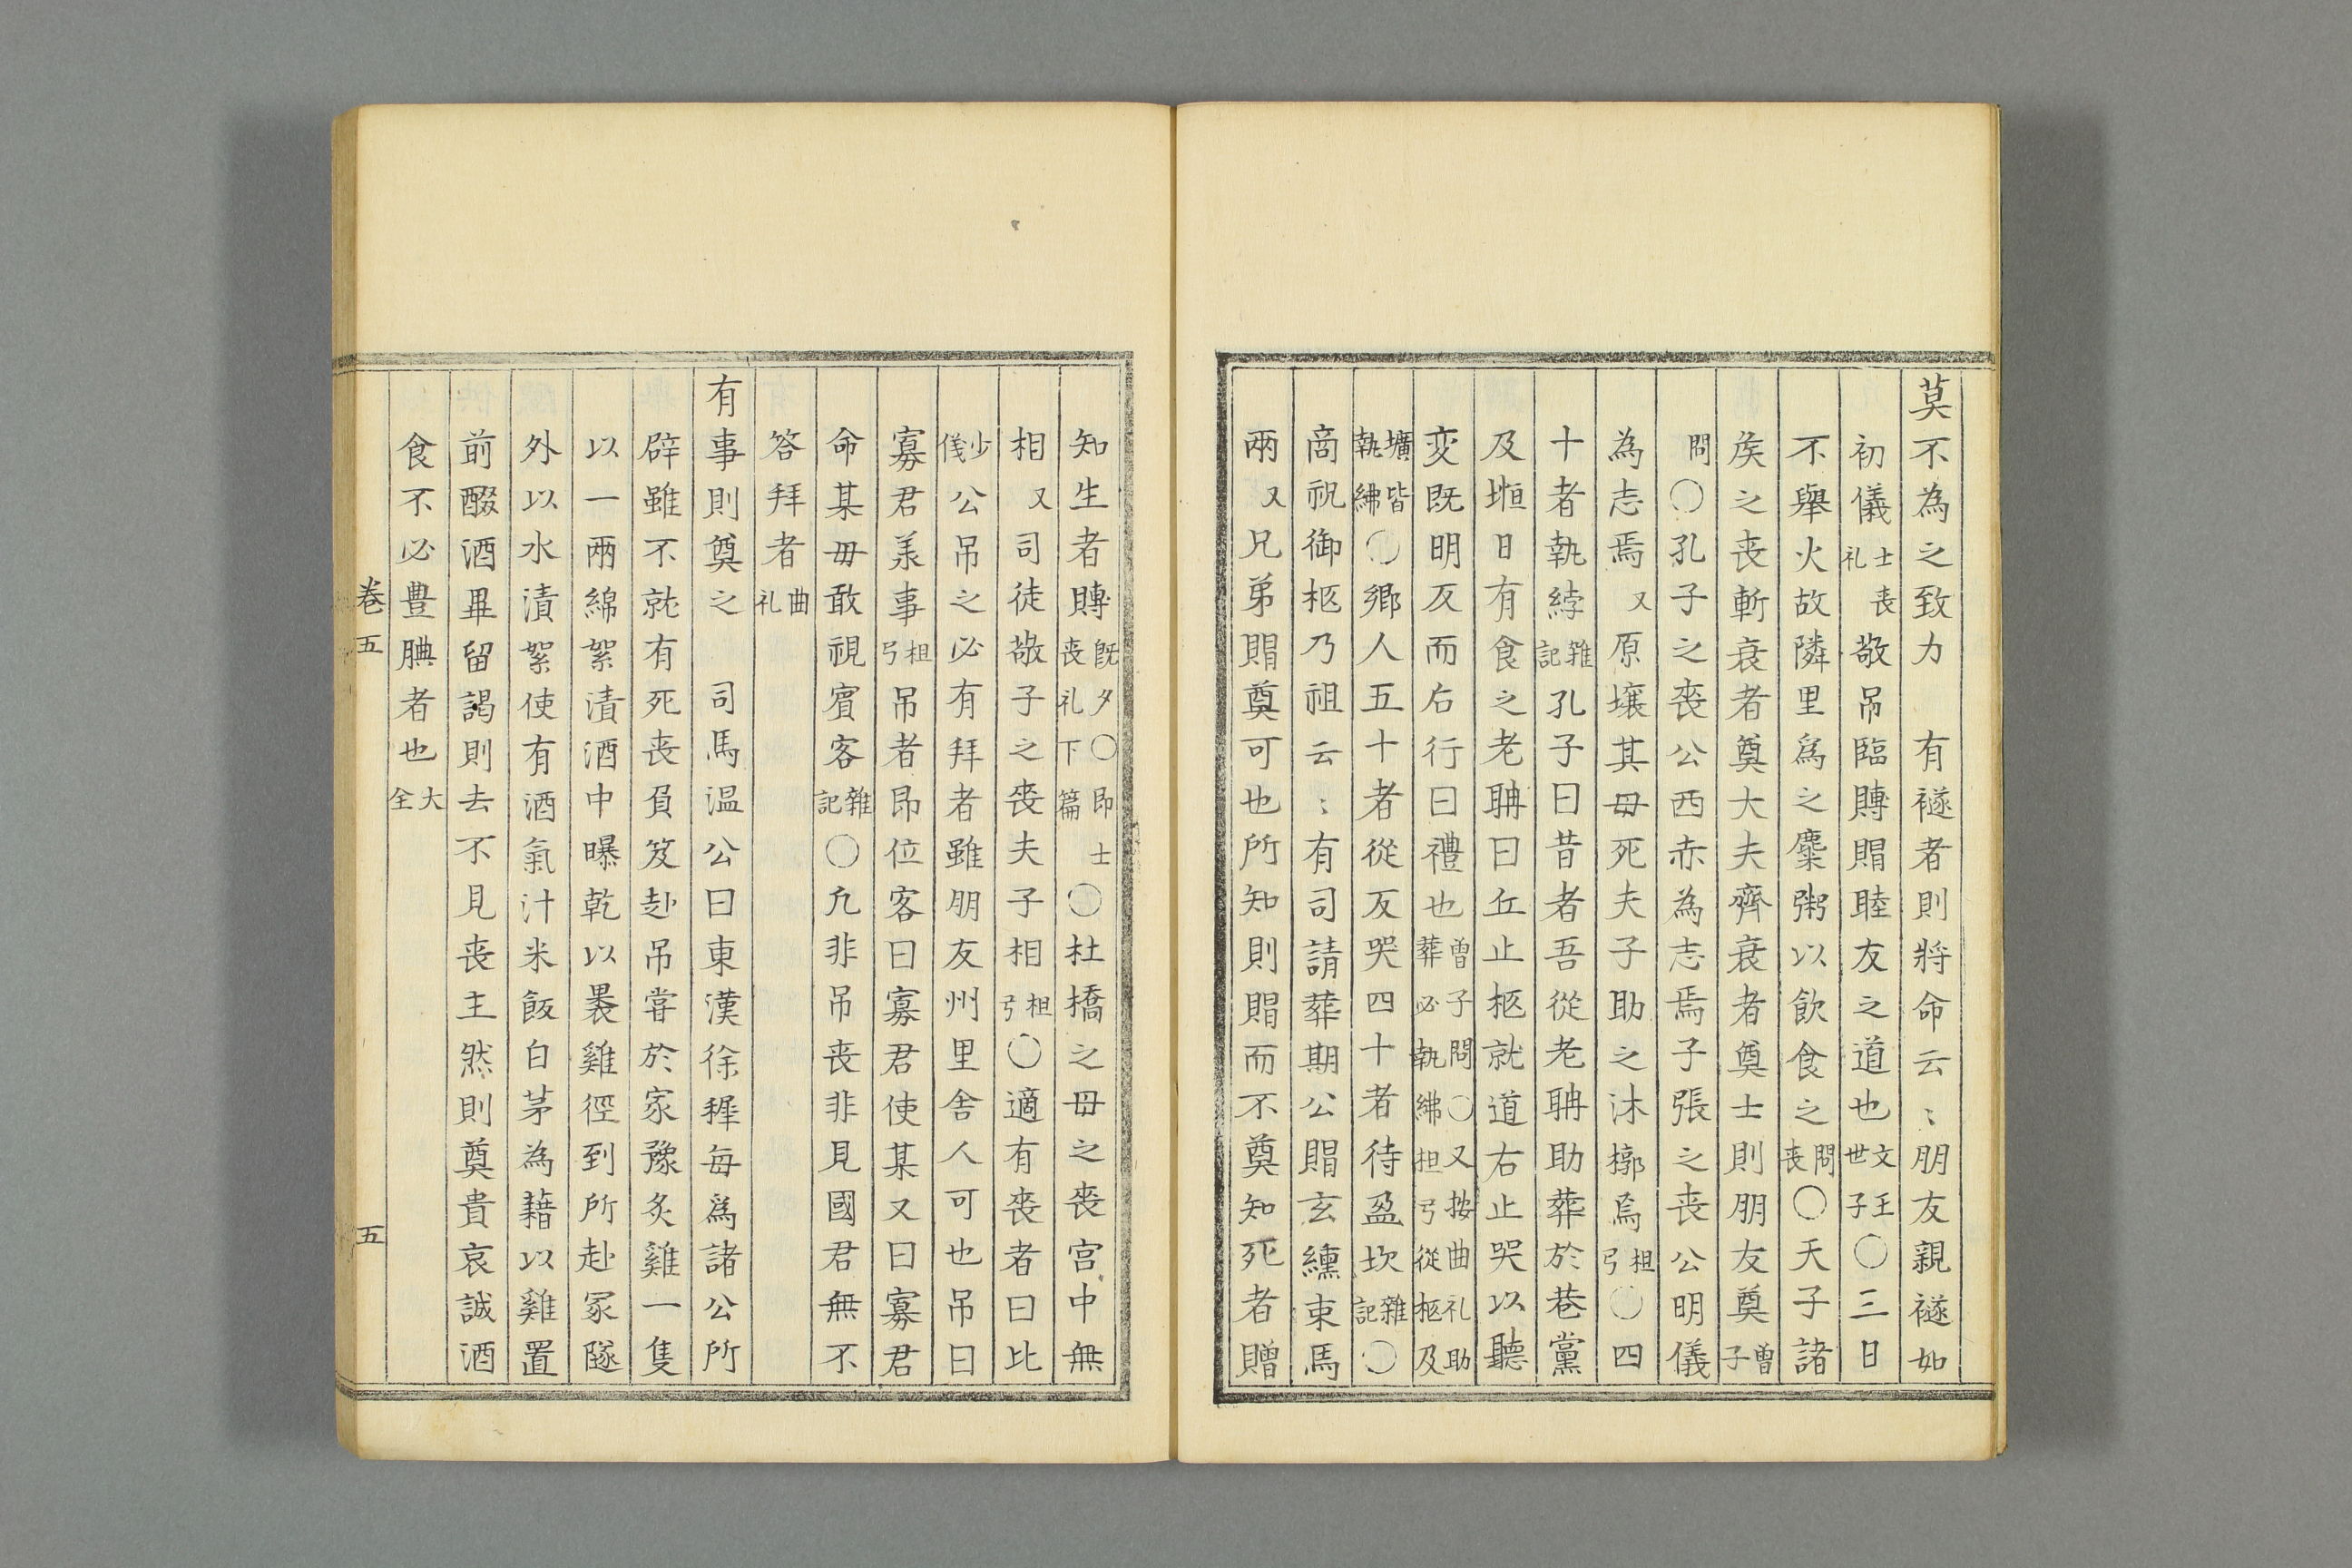 莫不為之致力　有襚者則將命云〻朋友親襚如
初儀士喪礼敬吊臨賻賵睦友之道也文王世子〇三日
不舉火故隣里爲之麋粥以飲食之問喪〇天子諸
矦之丧斬衰者奠大夫齊衰者奠士則朋友奠曽子
問〇孔子之喪公西赤為志焉子張之丧公明儀
為志焉又原壌其毋死夫子助之沐槨焉担弓〇四
十者執綍雜記孔子曰昔者吾從老聃助葬於巷黨
及堩日有食之老聃曰丘止柩就道右止哭以聽
変既明反而后行曰禮也曽子問〇又按曲礼助葬必執紼担弓從柩及
壙皆執紼〇鄉人五十者從反哭四十者待盈坎雜記〇
商祝御柩乃祖云〻有司請葬期公賵玄纁束馬
兩又兄弟賵奠可也所知則賵而不奠知死者贈
知生者賻既夕〇即士丧礼下篇〇杜橋之毋之喪宫中無
相又司徒敬子之喪夫子相担弓〇適有喪者曰比
少儀公吊之必有拜者雖朋友州里舍人可也吊曰
寡君羕事担弓吊者即位客曰寡君使某又曰寡君
命某毋敢視賓客雜記〇凢非吊丧非見國君無不
答拜者曲礼
有事則奠之　司馬温公曰東漢徐穉每爲諸公所
辟雖不就有死丧負笈赴吊甞於家豫炙雞一隻
以一兩綿絮漬酒中曝乾以褁雞徑到所赴冢隧
外以水漬絮使有酒氣汁米飯白茅為藉以雞置
前醊酒畢留謁則去不見丧主然則奠貴哀誠酒
食不必豊腆者也大全
卷五　五